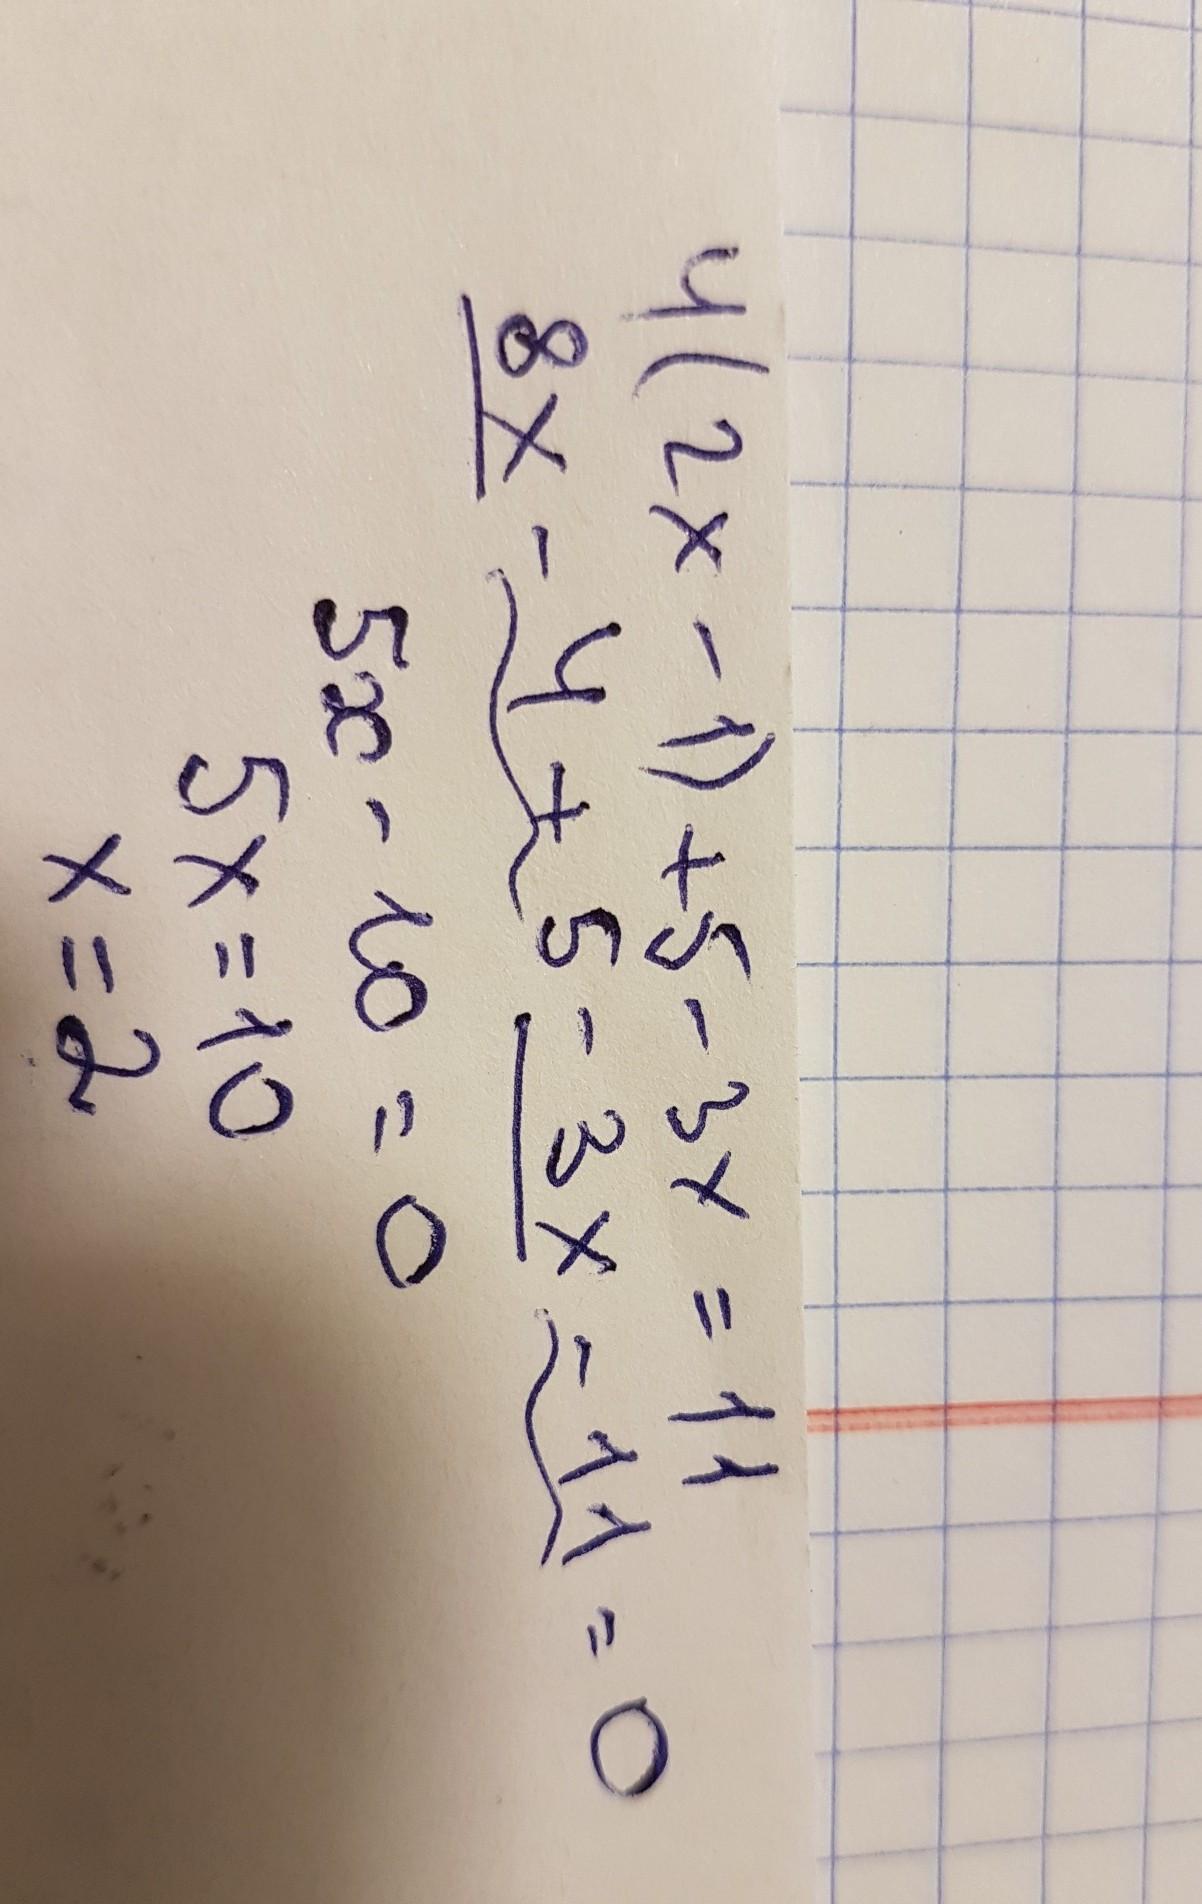 4(2x - 1) + 5 - 3x = 11
8x - 4 + 5 - 3x - 11 = 0
5x - 10 = 0
5x = 10
x = 2